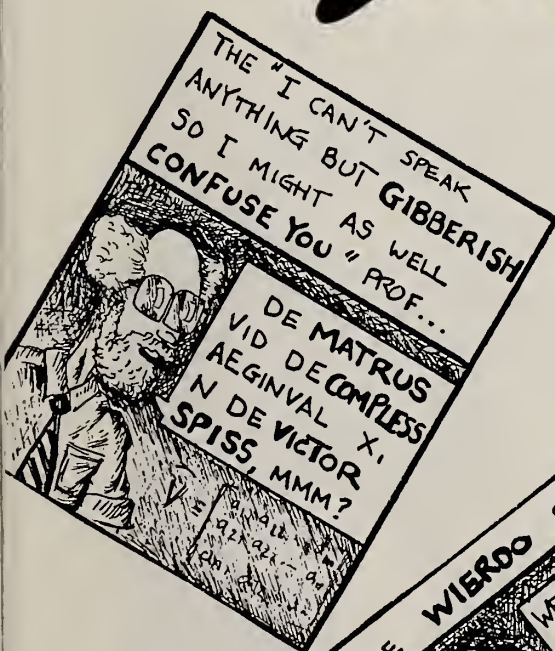 THE "I CAN'T SPEAK
ANYTHING BUT GIBBERISH
SO I MIGHT AS WELL
CONFUSE YOU" PROF...
DE MATRUS
VID DE COMPLESS
AEGINVAL X,
N DE VICTOR
SPISS, MMM?
V =
WIERDO